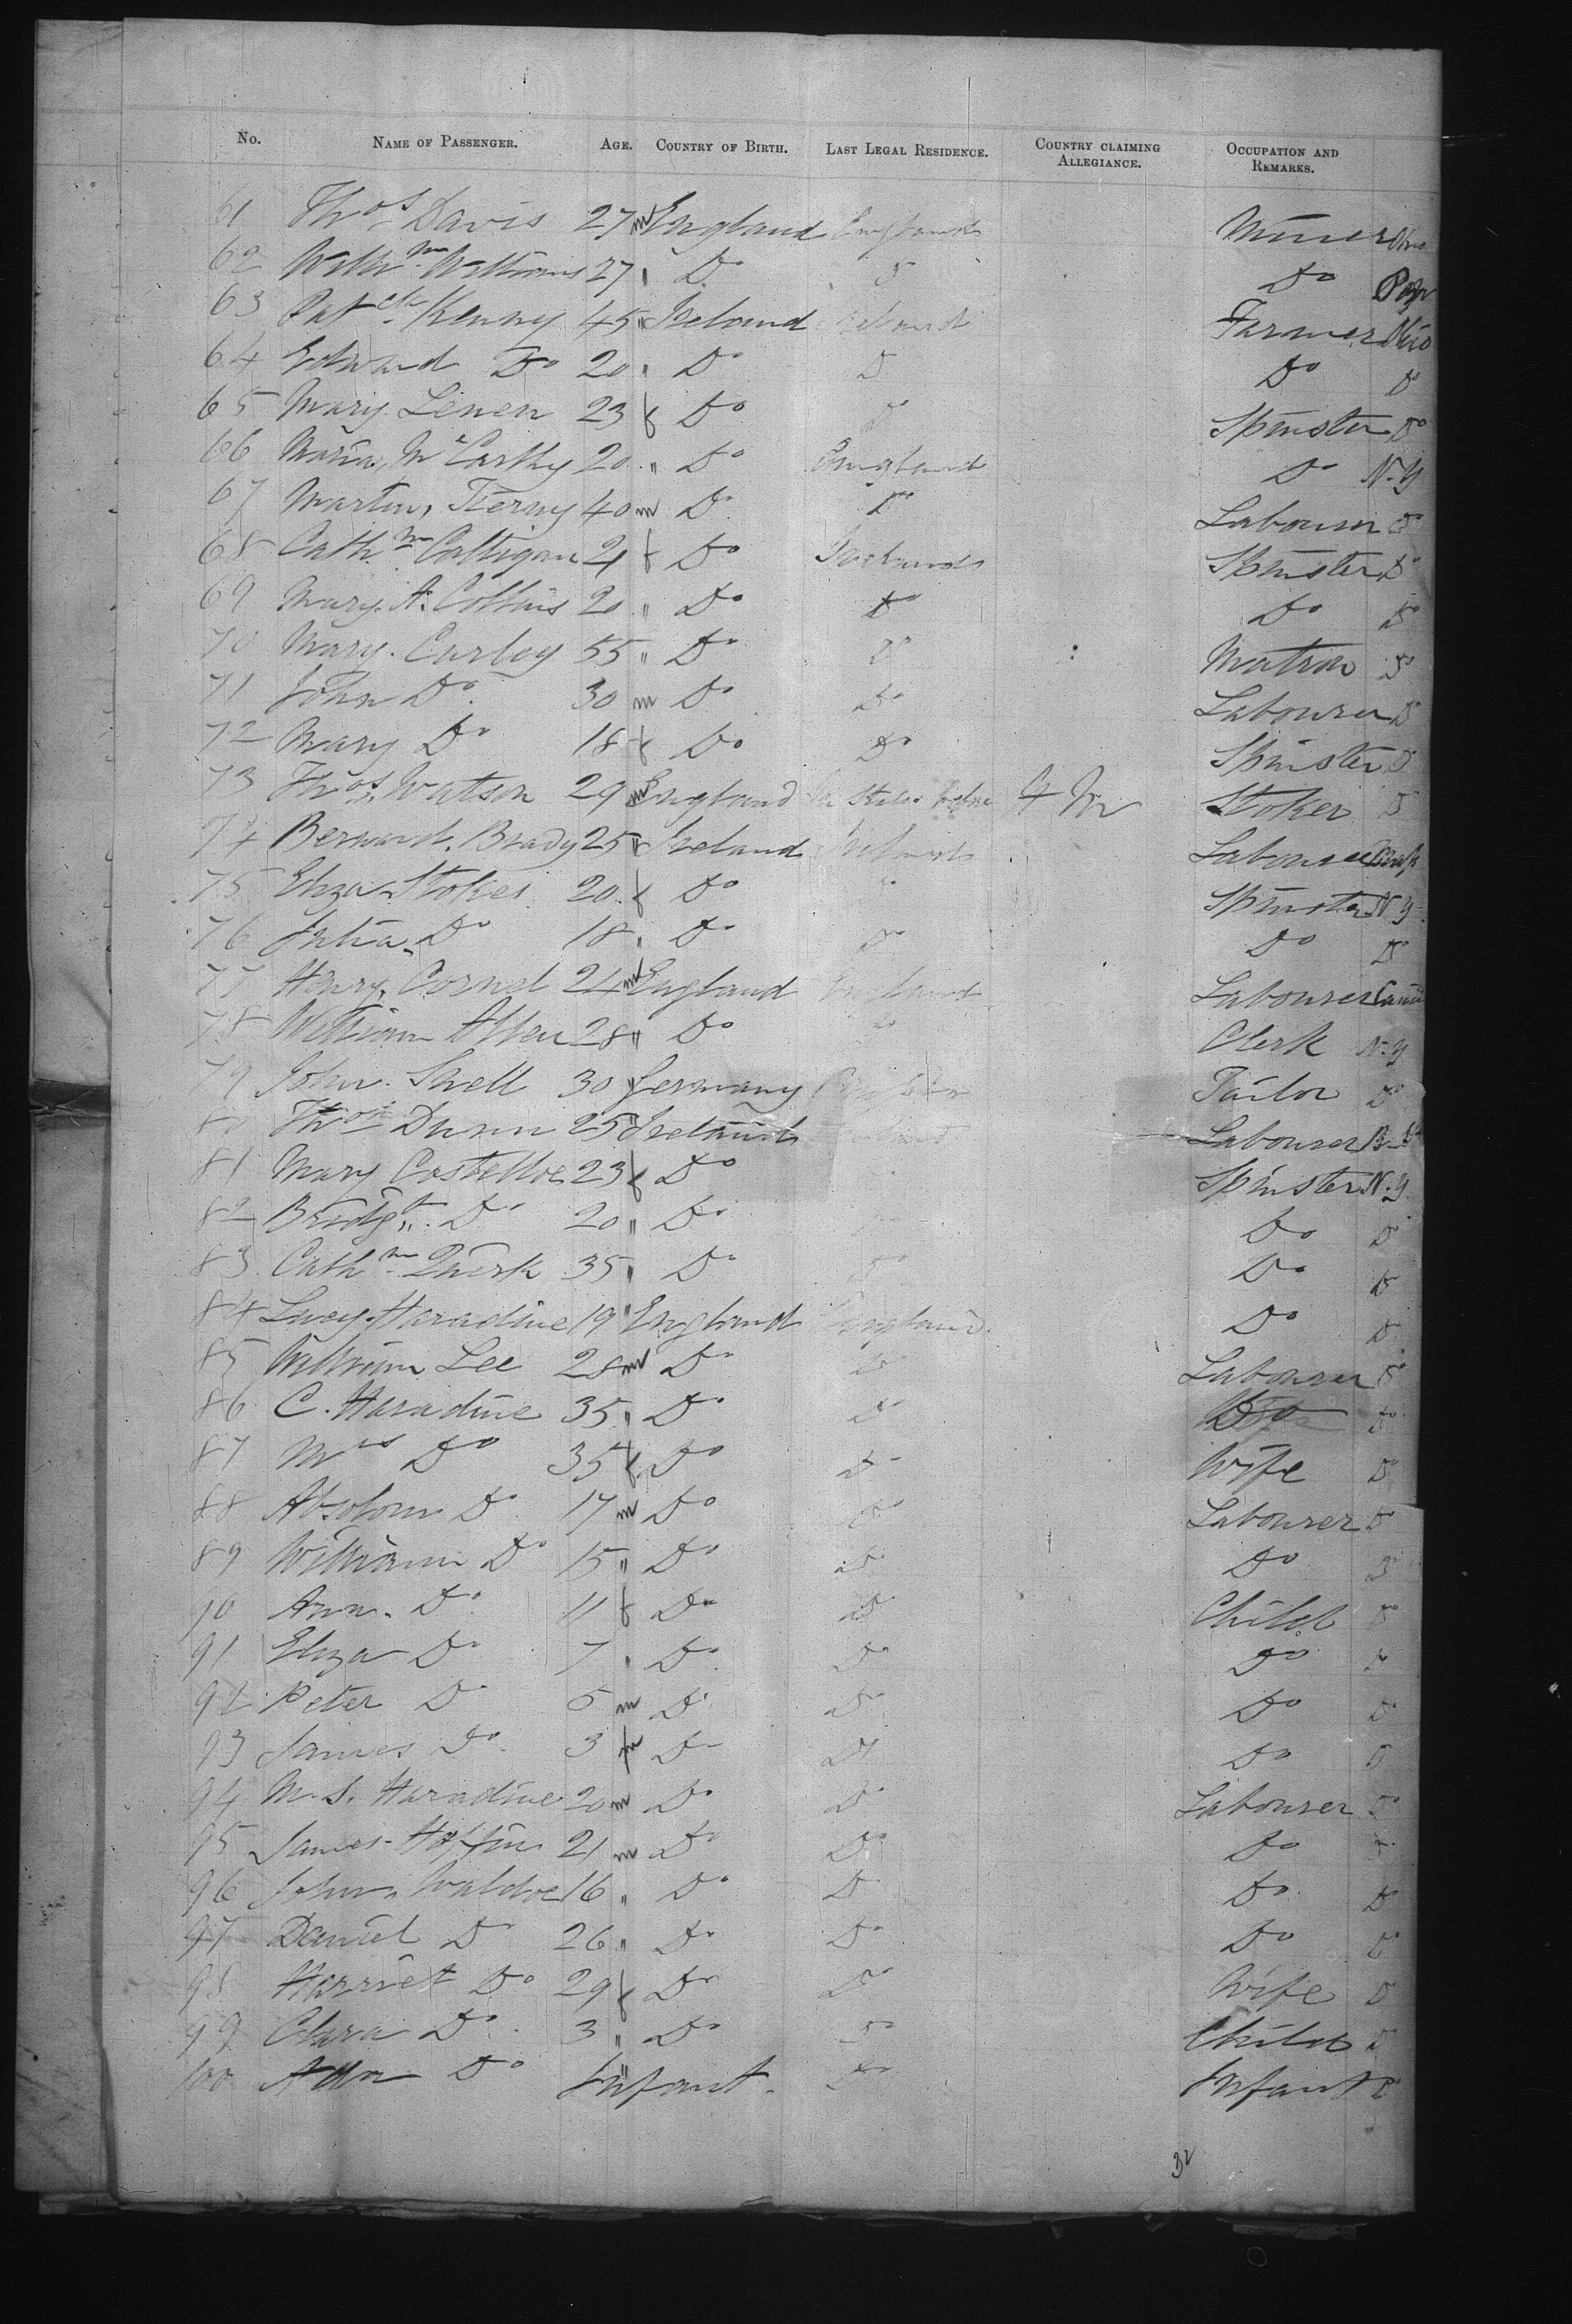 No. NAME OF PASSENGER. AGE. COUNTRY OF BIRTH. LAST LEGAL RESIDENCE. COUNTRY CLAIMING ALLEGIANCE. OCCUPATION AND REMARKS.
61 Thos Davis 27 m England England Miner
62 Willm Williams 27 " Do Do Do
63 Patck Kenny 45 " Ireland Ireland Farmer Ohio
64 Edward Do 20 " Do Do Do Do
65 Mary Lenen 23 f Do Do Spinster Do
66 Maria McCarthy 20 " Do England Do N.Y
67 Martin Tierny 40 m Do Do Labourer Do
68 Cathn 21 f Do Ireland Spinster Do
69 Mary A. Collins 20 " Do Do Do Do
70 Mary Curley 55 " Do Do Matron Do
71 John Do 30 m Do Do Labourer Do
72 Mary Do 18 f Do Do Spinster Do
73 Thos Watson 29 m England States before Stoker Do
74 Bernard Brady 25 " Ireland Ireland Labourer
75 Eliza Stokes 20 f Do Do Spinster N.Y.
76 Julia Do 18 " Do Do Do Do
77 Henry 24 m England England Labourer
78 William Allen 28 " Do Do Clerk N.Y
79 John Snell 30 " Germany Tailor Do
80 Thos Dunn 25 " Ireland Ireland Labourer
81 Mary Costelloe 23 f Do Spinster N.Y.
82 Bridgt Do 20 " Do Do Do
83 Cathn Quirk 35 " Do Do Do Do
84 Lucy Haradine 19 " England England Do Do
85 William Lee 28 m Do Do Labourer Do
86 C. Haradine 35 " Do Do Do Do
87 Mrs Do 35 f Do Do Wife Do
88 Absolom Do 17 m Do Do Labourer Do
89 William Do 15 " Do Do Do Do
90 Ann Do 11 f Do Do Child Do
91 Eliza Do 7 " Do Do Do Do
92 Peter Do 5 m Do Do Do Do
93 James Do 3 m Do Do Do Do
94 M. S. Haradine 20 m Do Do Labourer Do
95 James 21 m Do Do Do Do
96 John 16 " Do Do Do Do
97 Daniel Do 26 " Do Do Do Do
98 Harriet Do 29 f Do Do Wife Do
99 Clara Do 3 " Do Do Child Do
100 Do Infant Do Infant Do
32